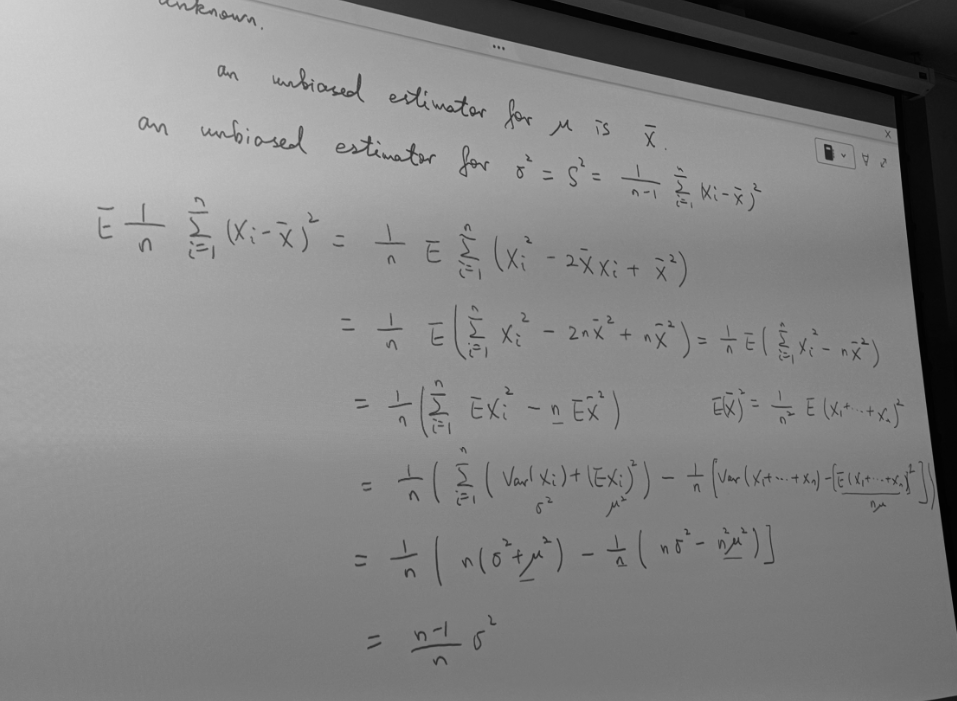 unknown.
an unbiased estimator for μ is X̄.
an unbiased estimator for σ² = S² = 1/(n-1) Σ_{i=1}^{n} (Xi - X̄)²
E 1/n Σ_{i=1}^{n} (Xi - X̄)² = 1/n E Σ_{i=1}^{n} (Xi² - 2X̄Xi + X̄²)
= 1/n E(Σ_{i=1}^{n} Xi² - 2nX̄² + nX̄²) = 1/n E(Σ_{i=1}^{n} Xi² - nX̄²)
= 1/n (Σ_{i=1}^{n} EXi² - n EX̄²) E(X̄)² = 1/n² E(X₁+⋯+Xn)²
= 1/n (Σ_{i=1}^{n} (Var(Xi) + (EXi)²) - 1/n [Var(X₁+⋯+Xn) - [E(X₁+⋯+Xn)]²])
σ² μ² nμ
= 1/n [n(σ²+μ²) - 1/n (nσ² - n²μ²)]
= (n-1)/n σ²